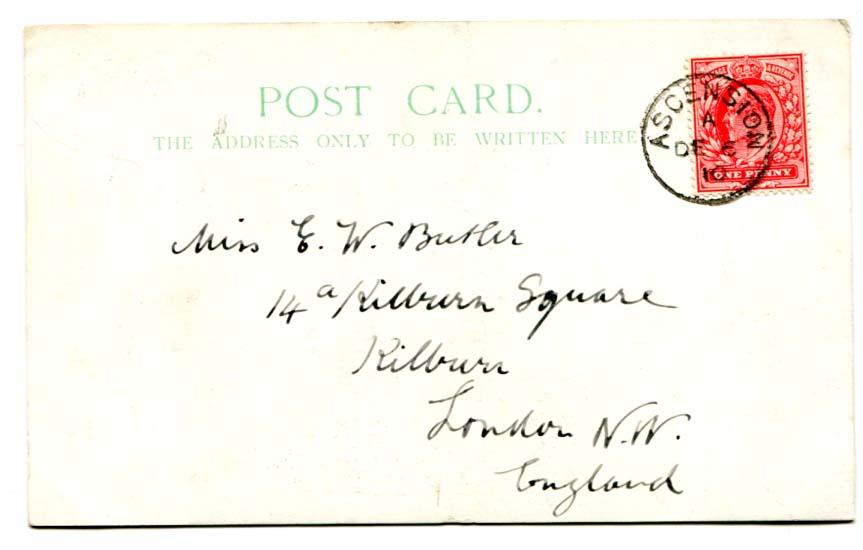 POST CARD.
THE ADDRESS ONLY TO BE WRITTEN HERE
ASCENSION
A
DE 6
10
ONE PENNY
Miss E. W. Butler
14a Kilburn Square
Kilburn
London N.W.
England